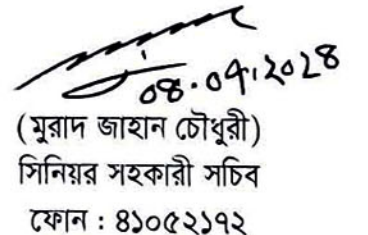 ০৪.০৭.২০২৪
(মুরাদ জাহান চৌধুরী)
সিনিয়র সহকারী সচিব
ফোন : ৪১০৫২১৭২